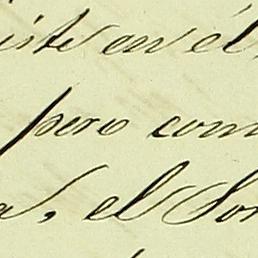 iste en él
pero com
a, el Son